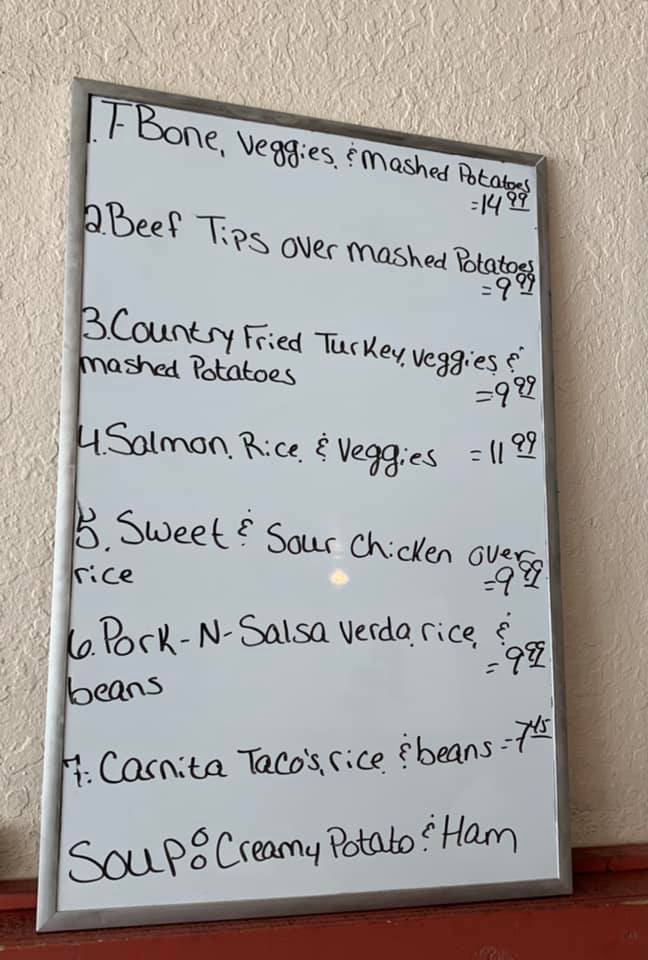 1. T-Bone, Veggies, & mashed Potatoes
=14 99
2. Beef Tips over mashed Potatoes
=9 99
3. Country Fried Turkey, veggies &
mashed Potatoes
=9 99
4. Salmon, Rice & Veggies =11 99
5. Sweet & Sour Chicken over
rice
=9 99
6. Pork-N-Salsa Verda, rice, &
beans
=9 99
7. Carnita Taco's, rice & beans -7 45
Soup: Creamy Potato & Ham